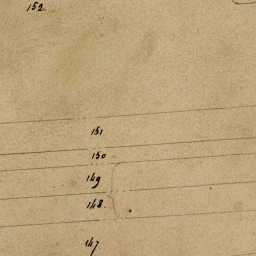 152
151
150
149
148
147